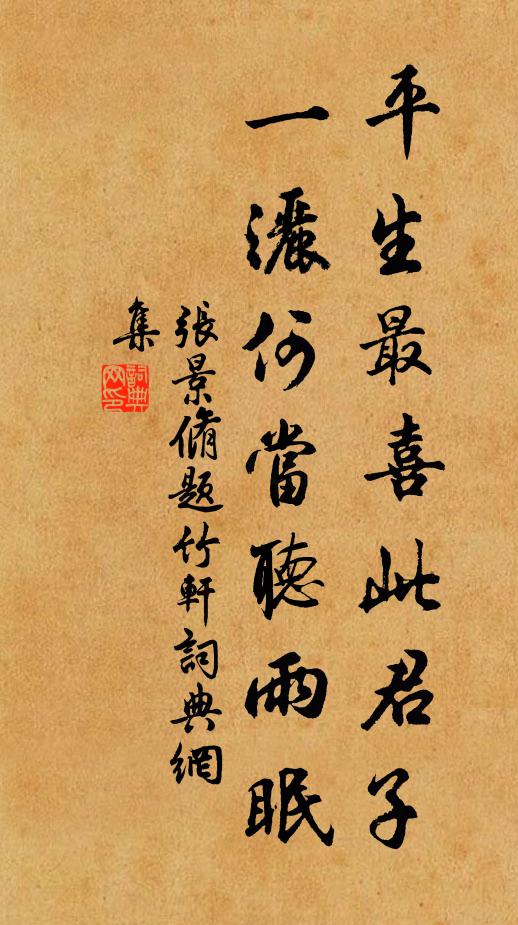 平生最喜此君子
一灑何當聽雨眠
張景脩題竹軒詞典網
集
詞典
网印